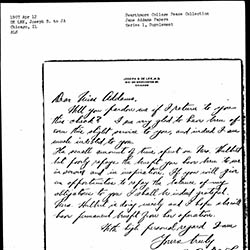 1907 Apr 12
DE LEE, Joseph B. to JA
Chicago, IL
ALS
Swarthmore College Peace Collection
Jane Addams Papers
Series 1, Supplement
JOSEPH B. DE LEE, M.D.
CHICAGO
Dear Miss Addams,
Will you pardon me if I return to you
this check? I am very glad to have been of
even this slight service to you, and indeed I am
much indebted to you.
The small amount of time spent on Mrs. Hulbert
but repays the benefit you have been to me
in service and in inspiration. If you will give
an opportunity to repay the balance of my
obligations to you I shall be indeed grateful.
Mrs. Hulbert is doing nicely and I hope she will
have permanent benefit from her operation.
With high personal regard I am
Yours truly